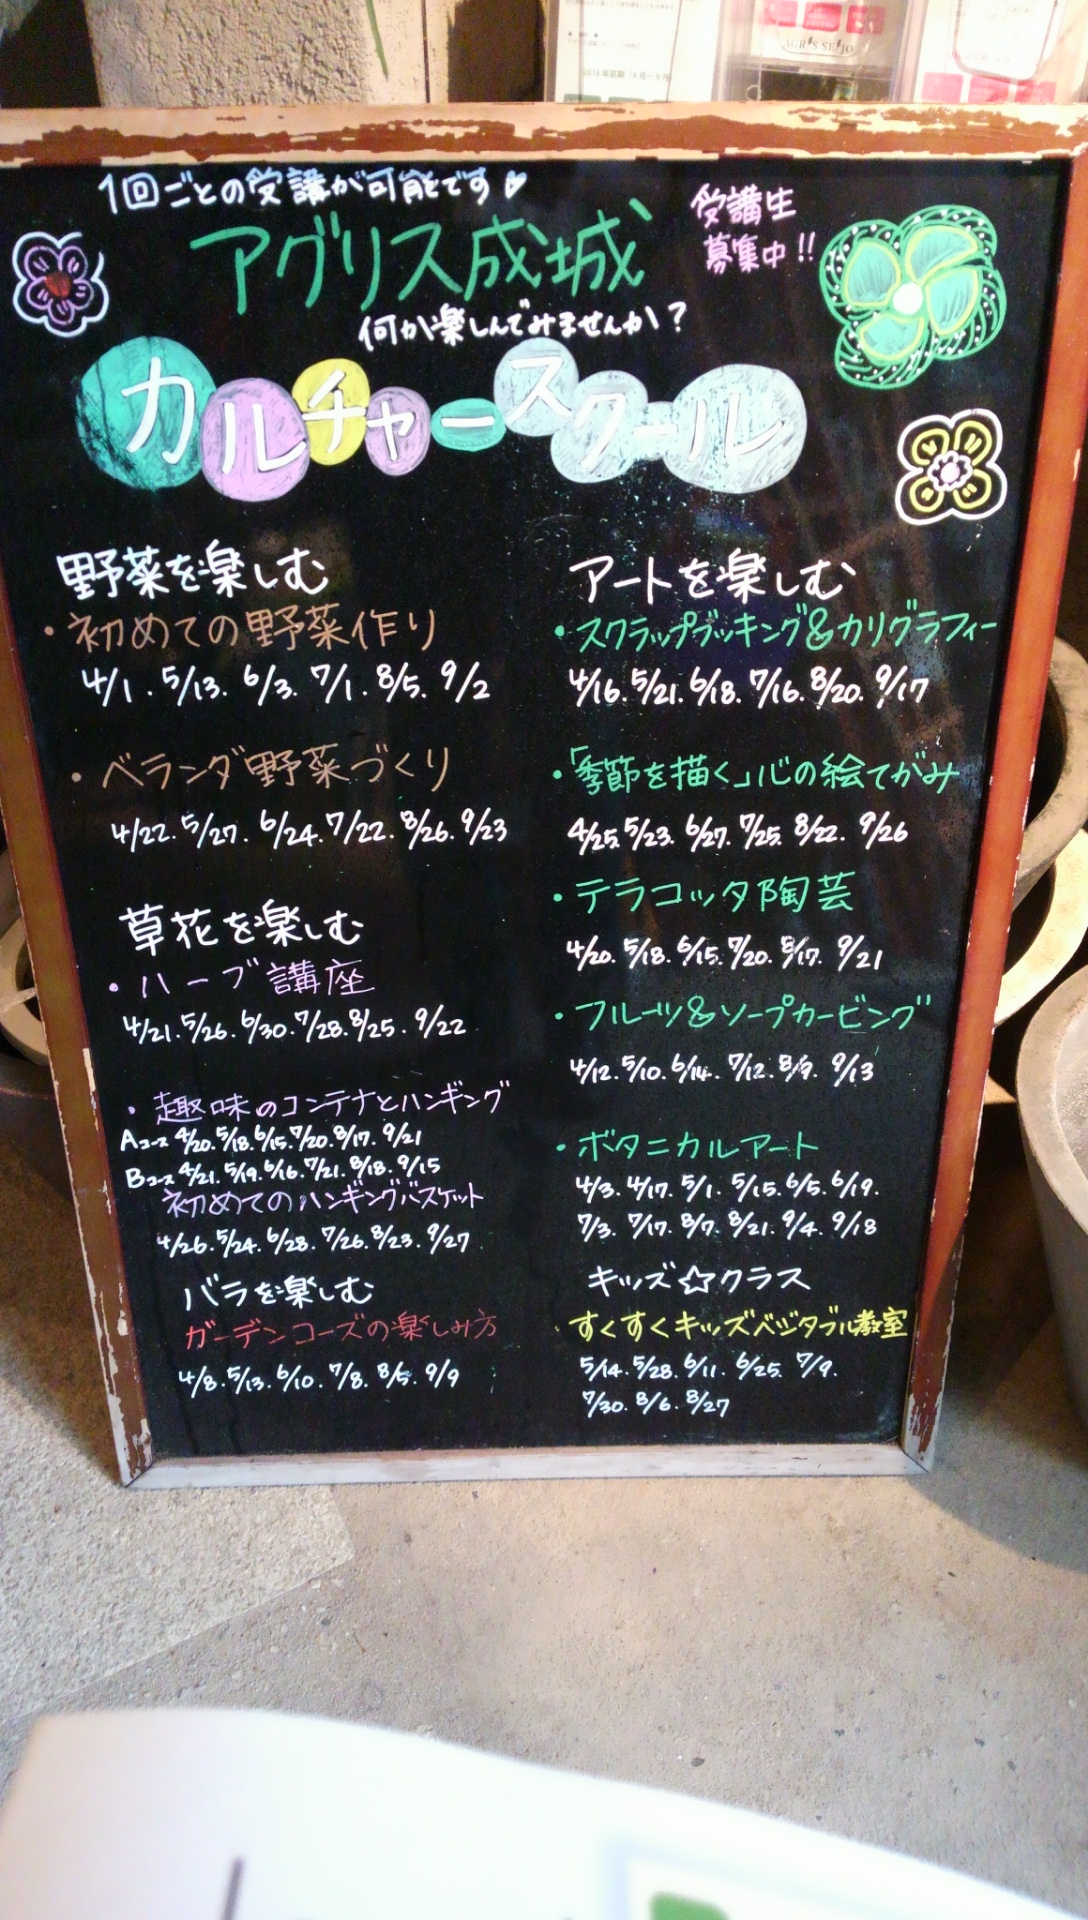 2016年前期 4月〜9月
AGRIS SEIJO
1回ごとの受講が可能です
アグリス成城
受講生
募集中!!
何か楽しんでみませんか?
カルチャースクール
野菜を楽しむ
・初めての野菜作り
4/1.5/13.6/3.7/1.8/5.9/2
・ベランダ野菜づくり
4/22.5/27.6/24.7/22.8/26.9/23
草花を楽しむ
・ハーブ講座
4/21.5/26.6/30.7/28.8/25.9/22
・趣味のコンテナとハンギング
Aコース 4/20.5/18.6/15.7/20.8/17.9/21
Bコース 4/21.5/19.6/16.7/21.8/18.9/15
初めてのハンギングバスケット
4/26.5/24.6/28.7/26.8/23.9/27
バラを楽しむ
ガーデンローズの楽しみ方
4/8.5/13.6/10.7/8.8/5.9/9
アートを楽しむ
・スクラップブッキング&カリグラフィー
4/16.5/21.6/18.7/16.8/20.9/17
・「季節を描く」心の絵てがみ
4/25.5/23.6/27.7/25.8/22.9/26
・テラコッタ陶芸
4/20.5/18.6/15.7/20.8/17.9/21
・フルーツ&ソープカービング
4/12.5/10.6/14.7/12.8/9.9/13
・ボタニカルアート
4/3.4/17.5/1.5/15.6/5.6/19.
7/3.7/17.8/7.8/21.9/4.9/18
キッズ☆クラス
・すくすくキッズベジタブル教室
5/14.5/28.6/11.6/25.7/9.
7/30.8/6.8/27